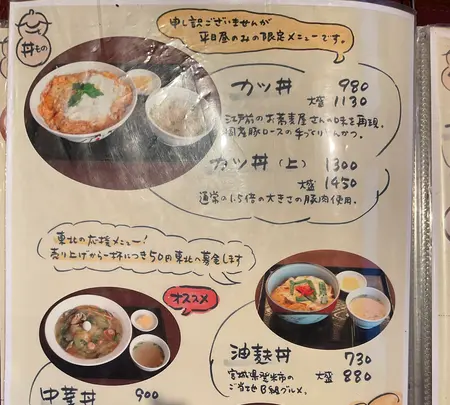 丼もの
申し訳ございませんが
平日昼のみの限定メニューです。
カツ丼 980
大盛 1130
江戸前のお蕎麦屋さんの味を再現。
国産豚ロースの手づくりとんかつ。
カツ丼(上) 1300
大盛 1450
通常の1.5倍の大きさの豚肉使用。
東北の応援メニュー!
売り上げから一杯につき50円東北へ募金します
オススメ
中華丼 900
油麩丼 730
宮城県登米市の 大盛 880
ご当地B級グルメ。